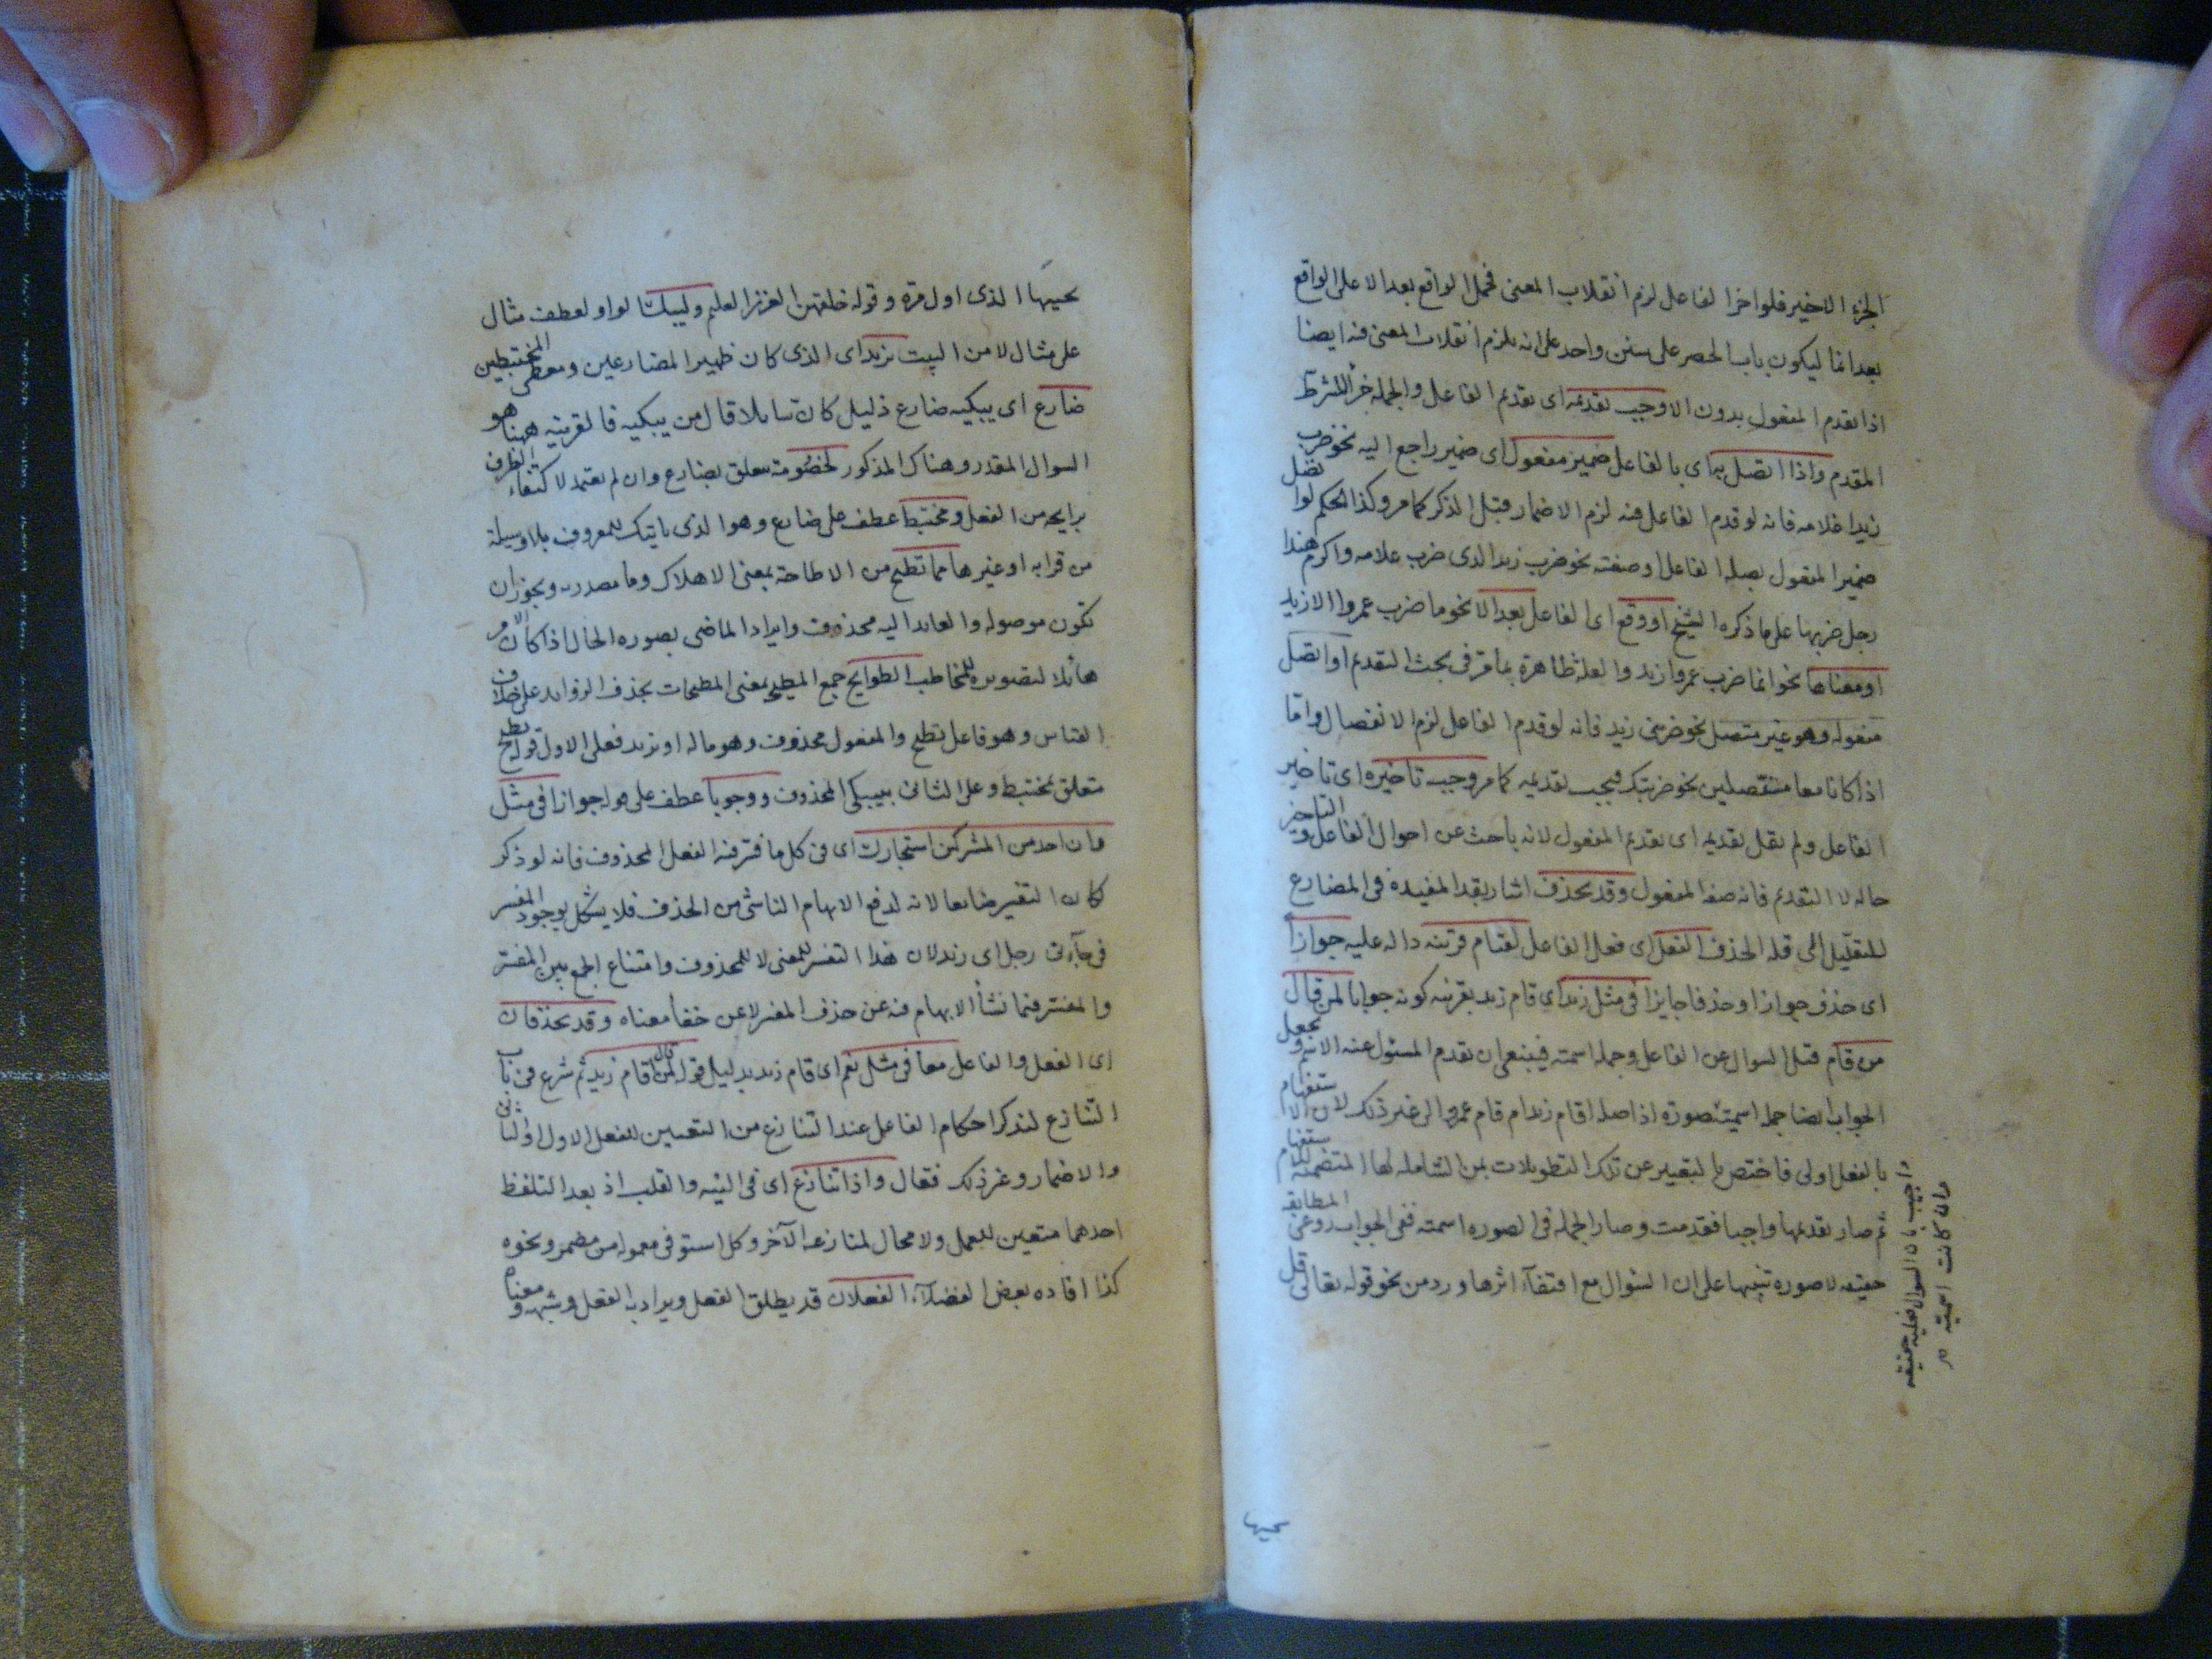 الجزء الاخير فلو اخر الفاعل لزم انقلاب المعنى فحمل الواقع بعد الا على الواقع
بعد انما ليكون باب الحصر على سنن واحد على انه يلزم انقلاب المعنى فيه ايضا
اذا تقدم المفعول بدون الا وجب تقديمه اى تقديم الفاعل والجملة جزاء للشرط
المقدم واذا اتصل به اى بالفاعل ضمير مفعول اى ضمير راجع اليه نحو ضرب
زيدا غلامه فانه لو قدم الفاعل فيه لزم الاضمار قبل الذكر كما مر وكذا الحكم لو اتصل
ضمير المفعول بصلة الفاعل او صفته نحو ضرب زيدا الذى ضرب غلامه واكرم هندا
رجل ضربها على ما ذكره الشيخ او وقع اى الفاعل بعد الا نحو ما ضرب عمروا الا زيد
او معناها نحو انما ضرب عمروا زيد والعلة ظاهرة بما مر فى بحث التقديم او اتصل
مفعوله وهو غير متصل نحو ضربنى زيد فانه لو قدم الفاعل لزم الانفصال واما
اذا كانا معا متصلين نحو ضربتك فيجب تقديمه كما مر وجب تاخيره اى تاخير
الفاعل ولم يقل تقديمه اى تقديم المفعول لانه باحث عن احوال الفاعل والتاخير
حاله لا التقديم فانه صفة المفعول وقد يحذف اشار بقد المفيدة فى المضارع
للتقليل الى قلة الحذف الفعل اى فعل الفاعل لقيام قرينة دالة عليه جوازا
اى حذف جواز او حذفا جايزا فى مثل زيد اى قام زيد بقرينة كونه جوابا لمن قال
من قام قيل السوال عن الفاعل وجملة اسمية فينبغى ان يقدم المسئول عنه الاثم ويجعل
الجواب ايضا جملة اسمية صورة اذ اصله اقام زيد ام قام عمرو الى غير ذلك لان الاستفهام
بالفعل اولى فاختص بالتعبير عن تلك التطويلات بمن الشاملة لها المتضمنة للاستفهام
ثم صار تقديمها واجبا فقدمت وصار الجملة فى الصورة اسمية ففى الجواب روعى المطابقة
حقيقة لا صورة تنبيها على ان السؤال مع اقتفاء اثرها ورد من نحو قوله تعالى قل
اجيب بان السوال فعلية حقيقة
وان كانت اسمية
يحييها
يحييها الذى اول مرة وقوله خلقهن العزيز العليم وليبك الواو لعطف مثال
على مثال لا من البيت يزيد اى الذى كان ظهير المضارعين ومعطى المختبطين
ضارع اى يبكيه ضارع ذليل كان سايلا قال من يبكيه فالقرينة ههنا هو
السوال المقدر وهناك المذكور لخصومة متعلق بضارع وان لم يعتمد لاكتفاء الظرف
برايحة من الفعل ومختبط عطف على ضارع وهو الذى ياتيك للمعروف بلا وسيلة
من قرابة او غيرها مما تطيح من الاطاحة بمعنى الاهلاك وما مصدرية ويجوز ان
تكون موصولة والعائد اليه محذوف وايراد الماضى بصورة الحال اذا كان الامر
هائلا لتصويره للمخاطب الطوايح جمع المطيحة بمعنى المطيحات بحذف الزوايد على خلاف
القياس وهو فاعل تطيح والمفعول محذوف وهو ماله او يزيد فعلى الاول قوله تطيح
متعلق بمختبط وعلى الثانى بيبكى المحذوف ووجوبا عطف على قوله جوازا فى مثل
وان احد من المشركين استجارك اى فى كل ما فسر فيه الفعل المحذوف فانه لو ذكر
كان التفسير ضايعا لانه لدفع الابهام الناشى من الحذف فلا يشكل بوجود المفسر
فى جاءنى رجل اى زيد لان هذا التفسير للمعنى لا للمحذوف وامتناع الجمع بين المفسر
والمفسر فيما نشأ الابهام فيه عن حذف المفسر لا عن خفاء معناه وقد يحذفان
اى الفعل والفاعل معا فى مثل نعم اى قام زيد بدليل قوله لمن قال اقام زيد ثم شرع فى باب
التنازع لتذكر احكام الفاعل عند التنازع من التعيين للفعل الاول او الثانى
والاضمار وغير ذلك فقال واذا تنازع اى فى النية والقلب اذ بعد التلفظ
احدهما متعين للعمل ولا مجال لمنازعة الآخر وكل استوفى معموله من مضمر ونحوه
كذا افاده بعض الفضلاء الفعلان قد يطلق الفعل ويراد به الفعل وشبهه ومعناه